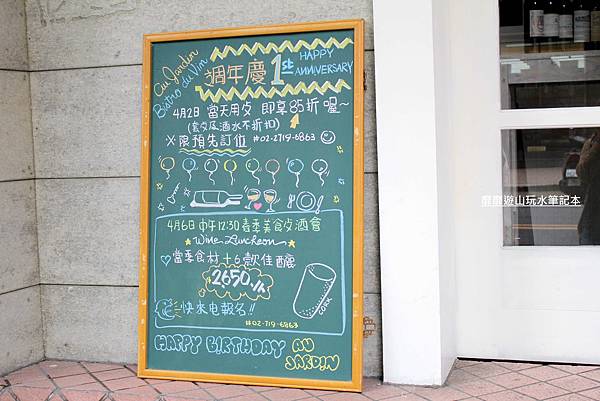 Au Jardin
Bistro du Vin
週年慶 1st HAPPY ANNIVERSARY
4月2日 當天用餐 即享85折喔~
(套餐及酒水不折扣)
※限預先訂位 #02-2719-6863
4月6日 中午12:30 春季美食餐酒會
Wine Luncheon
當季食材+6款佳釀
2650./人
CORK
快來电報名!!
#02-719-6863
HAPPY BIRTHDAY AU
JARDIN
靡靡遊山玩水筆記本